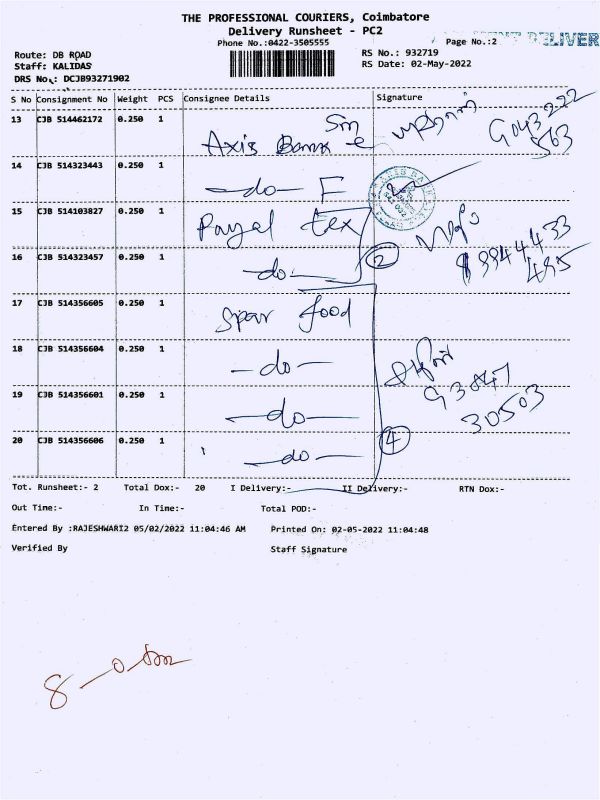 THE PROFESSIONAL COURIERS, Coimbatore
Delivery Runsheet - PC2
Phone No.:0422-3505555
Page No.:2
Route: DB ROAD
Staff: KALIDAS
DRS No.: DCJB93271902
RS No.: 932719
RS Date: 02-May-2022
S No Consignment No Weight PCS Consignee Details Signature
13 CJB 514462172 0.250 1 Axis Bank
14 CJB 514323443 0.250 1 -do- F
15 CJB 514103827 0.250 1 Payal tex
16 CJB 514323457 0.250 1 -do- 2
17 CJB 514356605 0.250 1 Spar food
18 CJB 514356604 0.250 1 -do-
19 CJB 514356601 0.250 1 -do-
93847
30503
20 CJB 514356606 0.250 1 -do- 4
Tot. Runsheet:- 2 Total Dox:- 20 I Delivery:- II Delivery:- RTN Dox:-
Out Time:- In Time:- Total POD:-
Entered By :RAJESHWARI2 05/02/2022 11:04:46 AM Printed On: 02-05-2022 11:04:48
Verified By Staff Signature